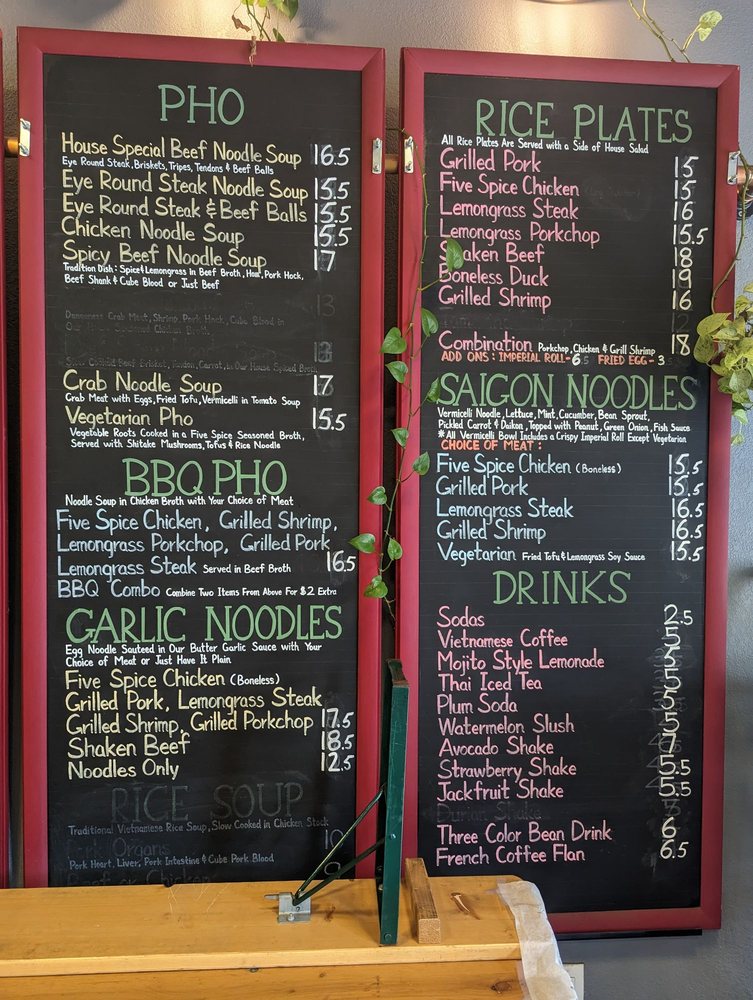 PHO
House Special Beef Noodle Soup 16.5
Eye Round Steak, Briskets, Tripes, Tendons & Beef Balls
Eye Round Steak Noodle Soup 15.5
Eye Round Steak & Beef Balls 15.5
Chicken Noodle Soup 15.5
Spicy Beef Noodle Soup 17
Tradition Dish: Spice & Lemongrass in Beef Broth, Ham, Pork Hock,
Beef Shank & Cube Blood or Just Beef
13
Crab Meat, Shrimp, Pork Hock, Cube Blood in
Chicken Broth
13
Brisket, Tendon, Carrot, in Our House Spiced Broth
Crab Noodle Soup 17
Crab Meat with Eggs, Fried Tofu, Vermicelli in Tomato Soup
Vegetarian Pho 15.5
Vegetable Roots Cooked in a Five Spice Seasoned Broth,
Served with Shitake Mushrooms, Tofus & Rice Noodle
BBQ PHO
Noodle Soup in Chicken Broth with Your Choice of Meat
Five Spice Chicken, Grilled Shrimp,
Lemongrass Porkchop, Grilled Pork
Lemongrass Steak Served in Beef Broth 16.5
BBQ Combo Combine Two Items From Above For $2 Extra
GARLIC NOODLES
Egg Noodle Sauteed in Our Butter Garlic Sauce with Your
Choice of Meat or Just Have It Plain
Five Spice Chicken (Boneless)
Grilled Pork, Lemongrass Steak
Grilled Shrimp, Grilled Porkchop 17.5
Shaken Beef 18.5
Noodles Only 12.5
RICE SOUP
Traditional Vietnamese Rice Soup, Slow Cooked in Chicken Stock
Pork Organs 10
Pork Heart, Liver, Pork Intestine & Cube Pork Blood
Beef or Chicken
RICE PLATES
All Rice Plates Are Served with a Side of House Salad
Grilled Pork 15
Five Spice Chicken 15
Lemongrass Steak 16
Lemongrass Porkchop 15.5
Shaken Beef 18
Boneless Duck 19
Grilled Shrimp 16
Combination Porkchop, Chicken & Grill Shrimp 18
ADD ONS: IMPERIAL ROLL - 6.5 FRIED EGG - 3.5
SAIGON NOODLES
Vermicelli Noodle, Lettuce, Mint, Cucumber, Bean Sprout,
Pickled Carrot & Daikon, Topped with Peanut, Green Onion, Fish Sauce
*All Vermicelli Bowl Includes a Crispy Imperial Roll Except Vegetarian
CHOICE OF MEAT:
Five Spice Chicken (Boneless) 15.5
Grilled Pork 15.5
Lemongrass Steak 16.5
Grilled Shrimp 16.5
Vegetarian Fried Tofu & Lemongrass Soy Sauce 15.5
DRINKS
Sodas 2.5
Vietnamese Coffee 5
Mojito Style Lemonade 5
Thai Iced Tea 5
Plum Soda 5
Watermelon Slush 5
Avocado Shake 7
Strawberry Shake 5.5
Jackfruit Shake 5.5
Durian Shake
Three Color Bean Drink 6
French Coffee Flan 6.5